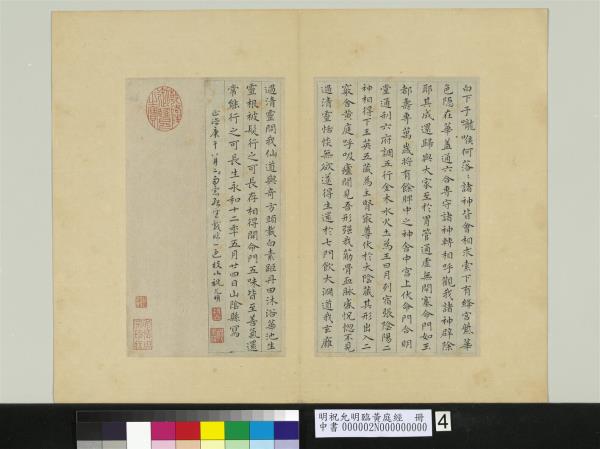 白下于嚨喉何落諸神皆會相求索下有絳宮紫華
色隱在華蓋通六合專守諸神轉相呼觀我諸神辟除
耶其成還歸與大家至於胃管通虛無閉塞命門如玉
都壽專萬歲將有餘脾中之神舍中宮上伏命門合明
堂通利六府調五行金木水火土為王日月列宿張陰陽二
神相得下玉英五藏為主腎最尊伏於大陰藏其形出入二
竅舍黃庭呼吸廬間見吾形強我筋骨血脈盛恍惚不見
過清靈恬惔無欲遂得生還於七門飲大淵道我玄雍
過清靈問我仙道與奇方頭載白素距丹田沐浴華池生
靈根被髮行之可長存相得開命門五味皆至善氣還
常能行之可長生永和十二年五月廿四日山陰縣寫
明祝允明臨黃庭經 冊
中書 000002N000000000
4